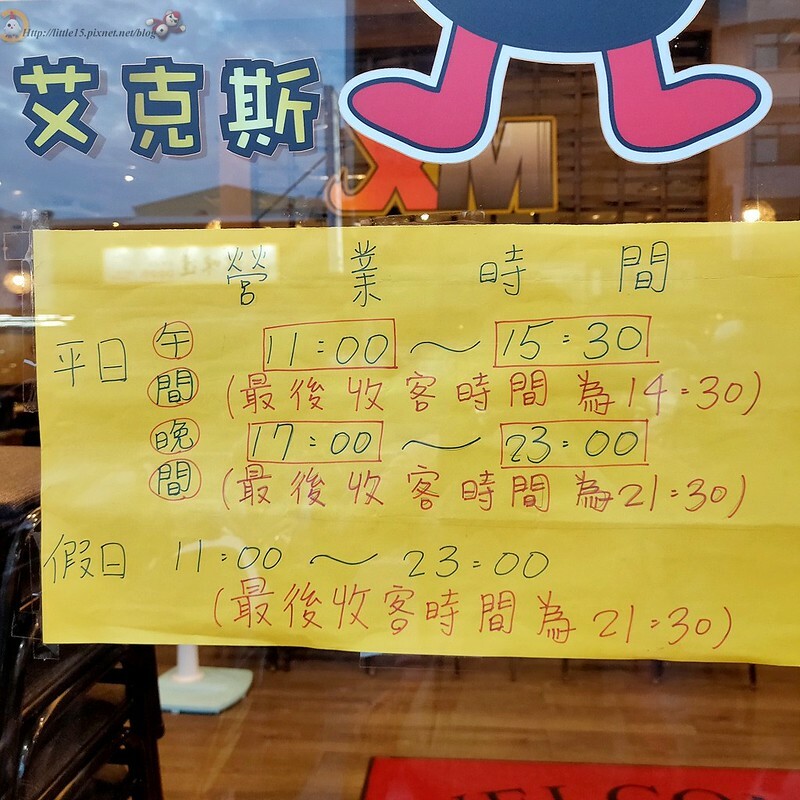 Http://little15.pixnet.net/blog
艾克斯
營業時間
平日 午間 11:00～15:30
(最後收客時間為14:30)
晚間 17:00～23:00
(最後收客時間為21:30)
假日 11:00～23:00
(最後收客時間為21:30)